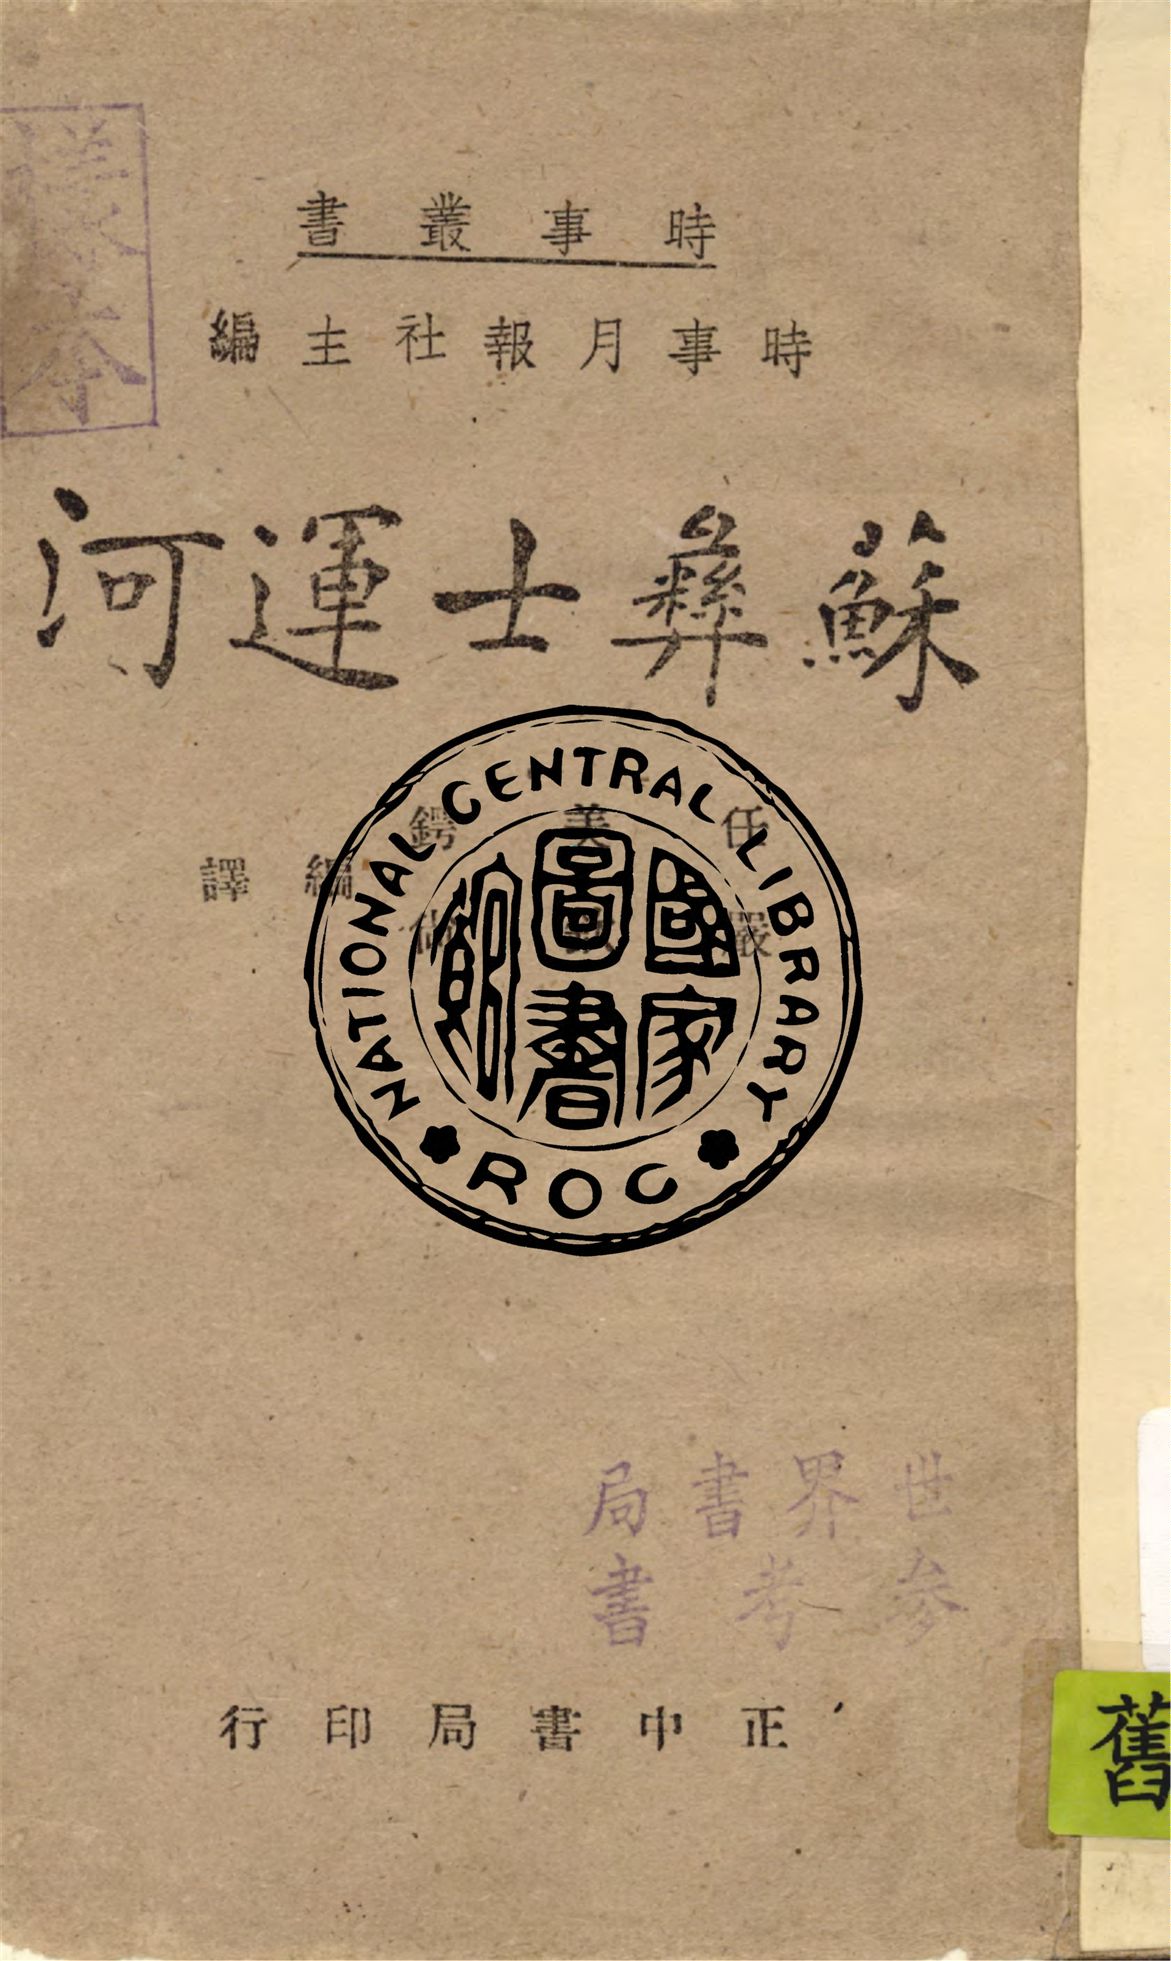 樣本
時事叢書
時事月報社主編
蘇彞士運河
任美鍔
嚴欽尙
編譯
NATIONAL CENTRAL LIBRARY
國家圖書館
ROC
世界書局
參考書
正中書局印行
舊